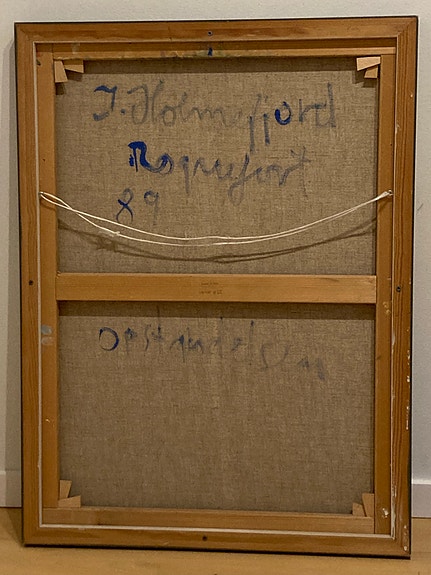 J. Holmefjord
Roquefort
89
Opstandelsen